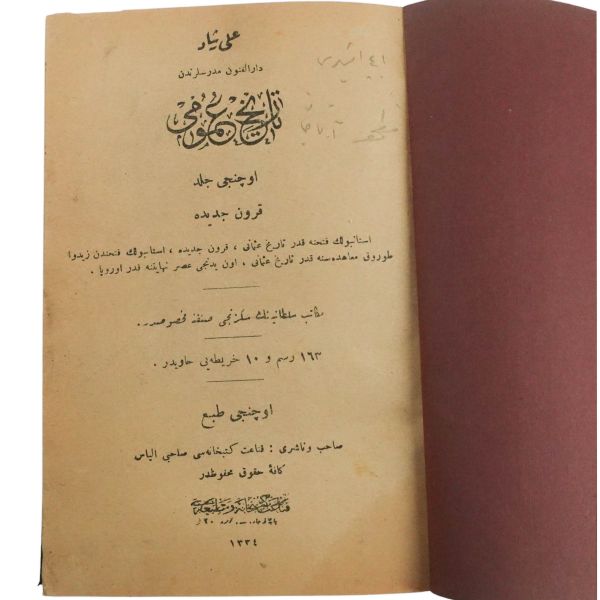 علی رشاد
دار الفنون مدرسلرندن
تاریخ عمومی
اوچنجی جلد
قرون جدیده
استانبولك فتحنه قدر تاریخ عثمانی ، قرون جدیده ، استانبولك فتحندن زیدوا
طوروق معاهده‌سنه قدر تاریخ عثمانی ، اون یدنجی عصر نهایتنه قدر اوروپا .
مكاتب سلطانیه‌نك سكزنجی صنفنه مخصوصدر .
١٦٣ رسم و ١٠ خریطه‌یی حاویدر .
اوچنجی طبع
صاحب و ناشری : قناعت كتبخانه‌سی صاحبی الیاس
كافهٔ حقوق محفوظدر
قناعت كتبخانه و مطبعه‌سی
١٣٣٤